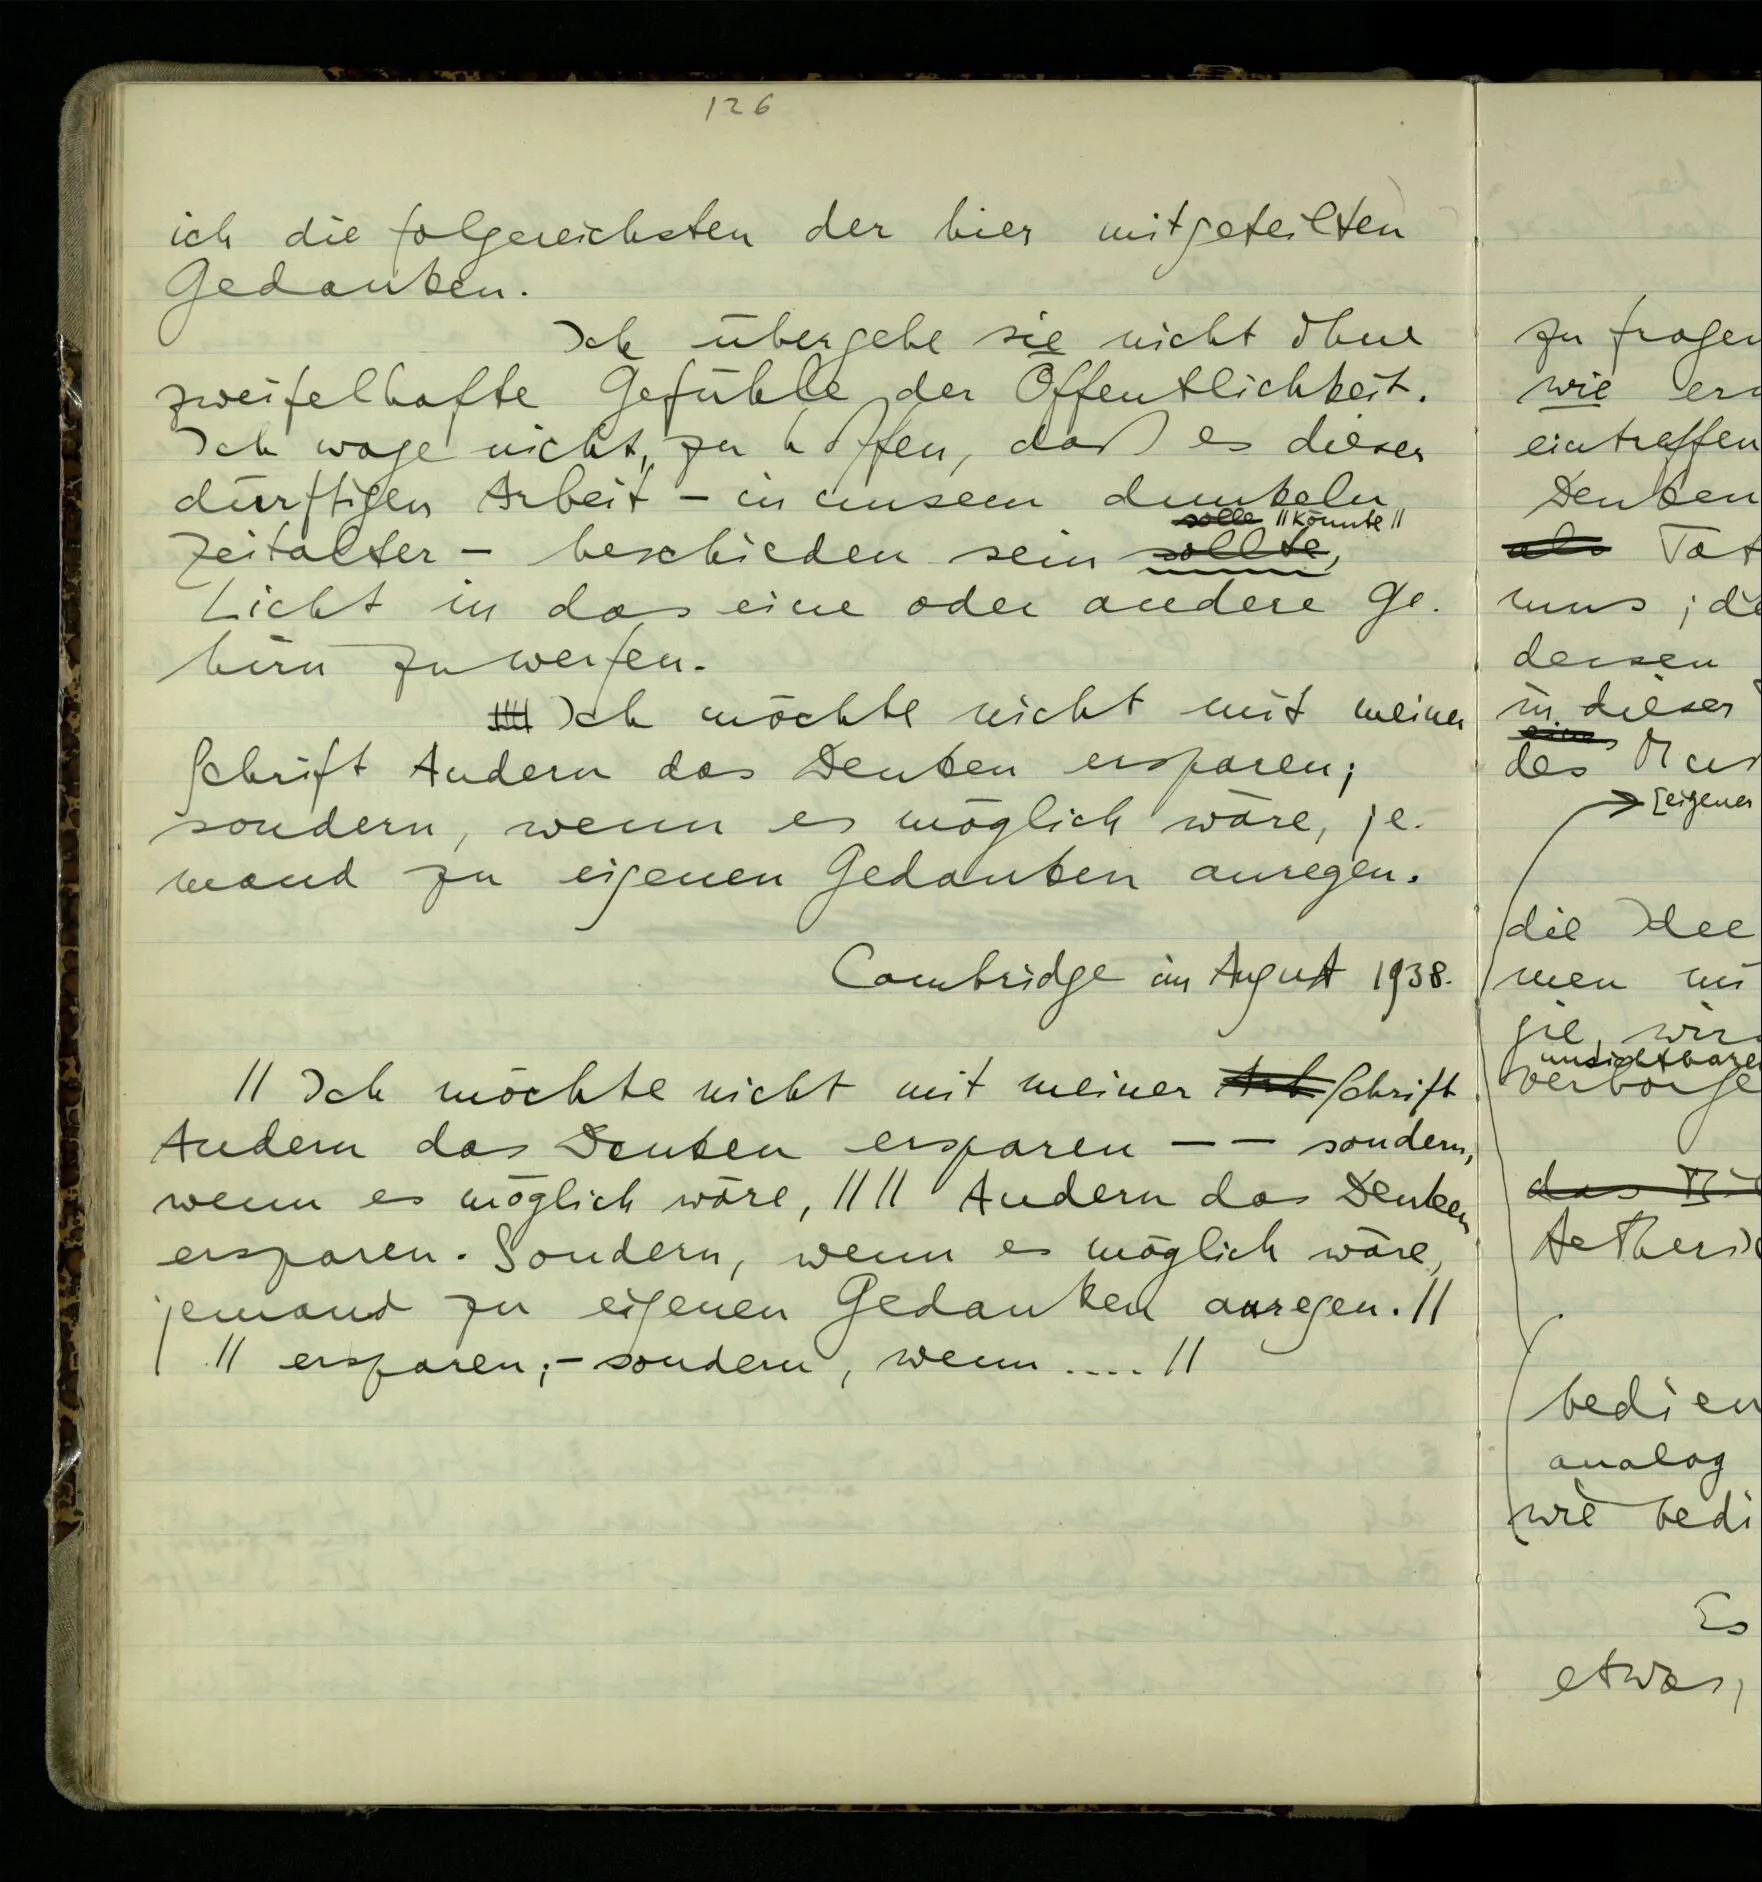 126
ich die folgereichsten der hier mitgeteilten
Gedanken.
Ich übergebe sie nicht ohne
zweifelhafte Gefühle der Öffentlichkeit.
Ich wage nicht, zu hoffen, daß es dieser
dürftigen Arbeit – in unserm dunkeln
solle || könnte ||
Zeitalter – beschieden sein sollte,
Licht in das eine oder andere Ge-
hirn zu werfen.
Ich möchte nicht mit meiner
Schrift Andern das Denken ersparen;
sondern, wenn es möglich wäre, je-
mand zu eigenen Gedanken anregen.
Cambridge im August 1938.
|| Ich möchte nicht mit meiner Arb Schrift
Andern das Denken ersparen – – sondern,
wenn es möglich wäre, || || Andern das Denken
ersparen. Sondern, wenn es möglich wäre,
jemand zu eigenen Gedanken anregen. ||
|| ersparen; – sondern, wenn .... ||
zu fragen
wie
eintreffen
Denken
also Tat
uns ; di
dessen
in dieser
eines
des
[eigener
die Idee
men
sie, wir
unsichtbare
verborge
das
Aether
bedien
analog
wie bedi
Es
etwas,